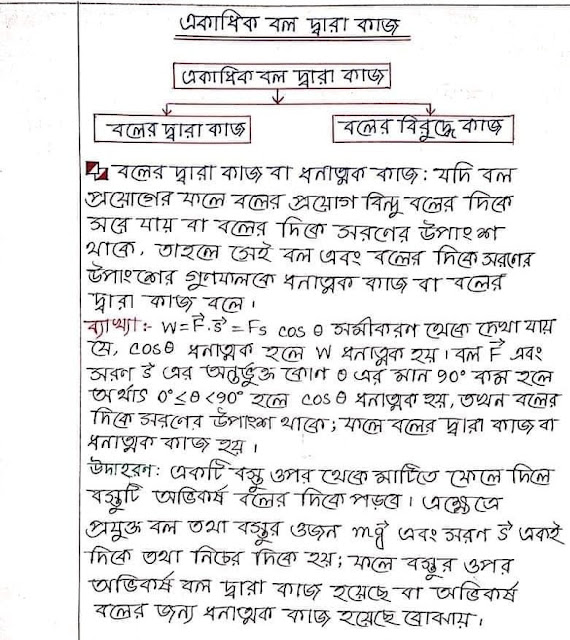 একাধিক বল দ্বারা কাজ
একাধিক বল দ্বারা কাজ
বলের দ্বারা কাজ
বলের বিরুদ্ধে কাজ
বলের দ্বারা কাজ বা ধনাত্মক কাজ: যদি বল
প্রয়োগের ফলে বলের প্রয়োগ বিন্দু বলের দিকে
সরে যায় বা বলের দিকে সরণের উপাংশ
থাকে, তাহলে সেই বল এবং বলের দিকে সরণের
উপাংশের গুণফলকে ধনাত্মক কাজ বা বলের
দ্বারা কাজ বলে।
ব্যাখ্যা:- W=F⃗.s⃗ = Fs cos θ সমীকরণ থেকে দেখা যায়
যে, cosθ ধনাত্মক হলে W ধনাত্মক হয়। বল F⃗ এবং
সরণ s⃗ এর অন্তর্ভুক্ত কোণ θ এর মান 90° কম হলে
অর্থাৎ 0°≤θ<90° হলে cosθ ধনাত্মক হয়, তখন বলের
দিকে সরণের উপাংশ থাকে; ফলে বলের দ্বারা কাজ বা
ধনাত্মক কাজ হয়।
উদাহরণ: একটি বস্তু ওপর থেকে মাটিতে ফেলে দিলে
বস্তুটি অভিকর্ষ বলের দিকে পড়বে। এক্ষেত্রে
প্রযুক্ত বল তথা বস্তুর ওজন mg⃗ এবং সরণ s⃗ একই
দিকে তথা নিচের দিকে হয়; ফলে বস্তুর ওপর
অভিকর্ষ বল দ্বারা কাজ হয়েছে বা অভিকর্ষ
বলের জন্য ধনাত্মক কাজ হয়েছে বোঝায়।